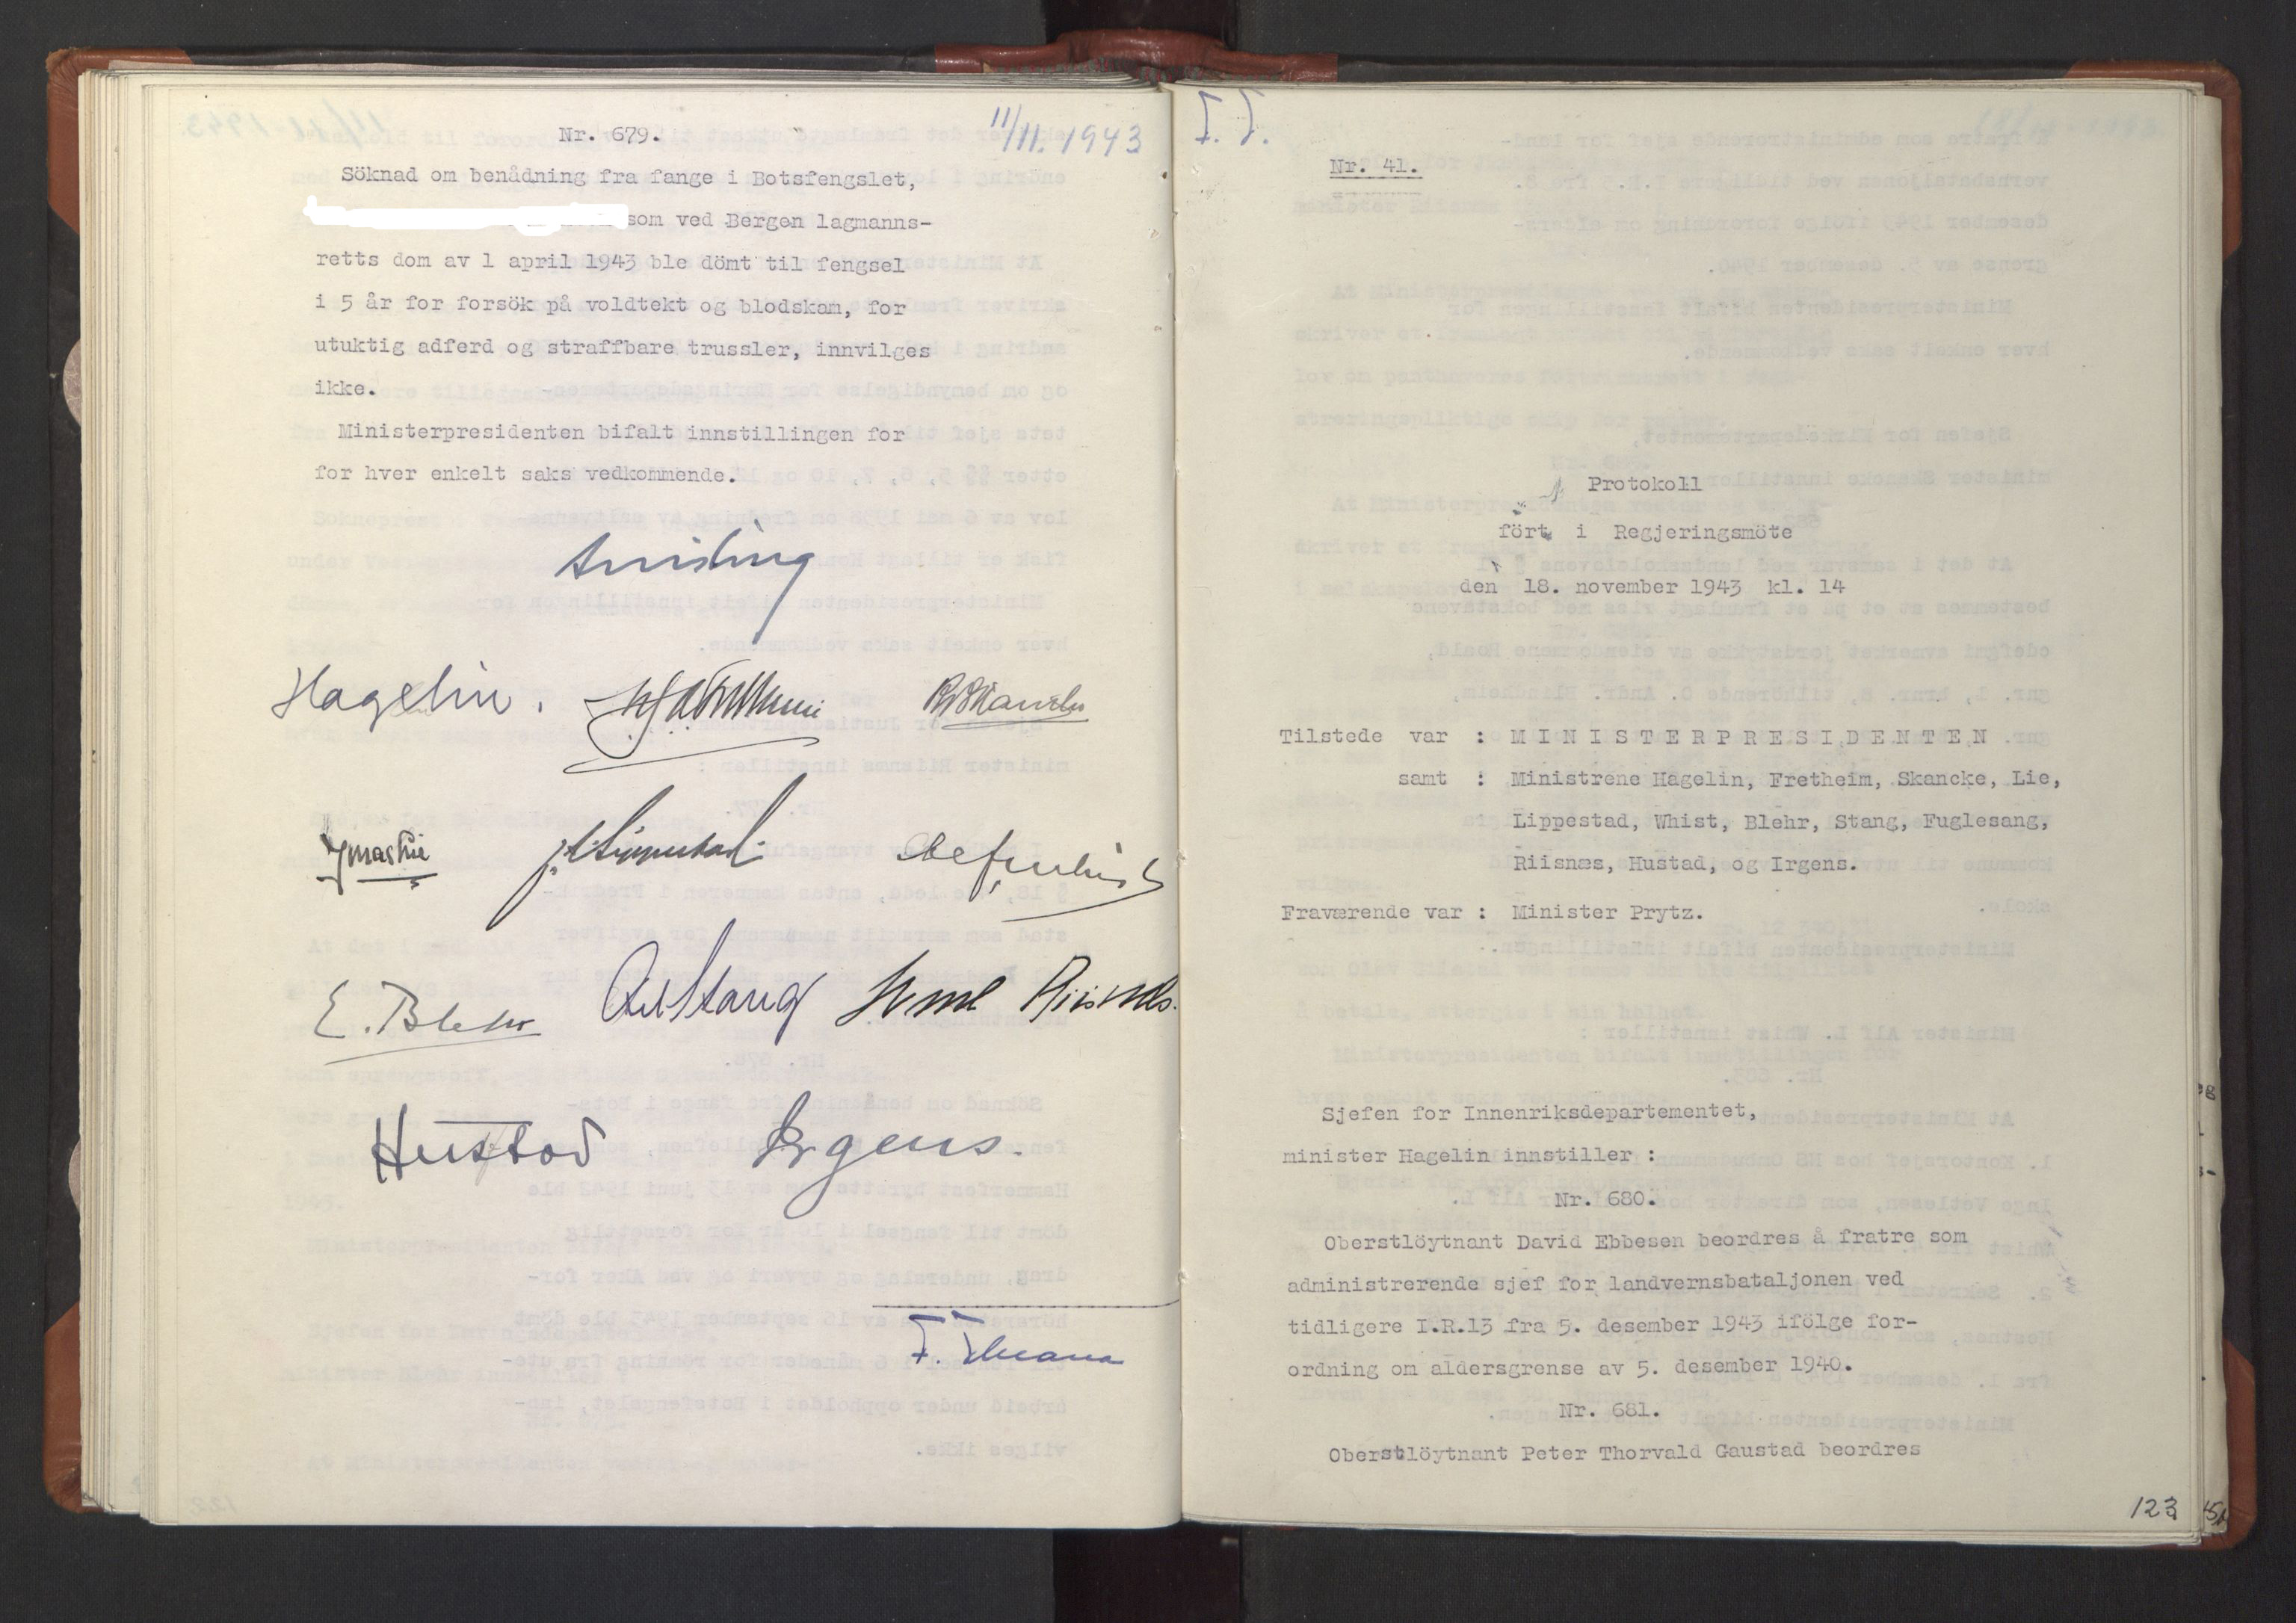 11/11. 1943
Nr. 679.
Söknad om benådning fra fange i Botsfengslet,
som ved Bergen lagmanns-
retts dom av 1 april 1943 ble dömt til fengsel
i 5 år for forsök på voldtekt og blodskam, for
utuktig adferd og straffbare trussler, innvilges
ikke.
Ministerpresidenten bifalt innstillingen for
for hver enkelt saks vedkommende.
Quisling
Hagelin.
R Skancke
Jonas Lie
E. Blehr
Axel Stang
Riisnæs.
Hustad
Irgens.
T. T.
Nr. 41.
Protokoll
fört i Regjeringsmöte
den 18. november 1943 kl. 14
Tilstede var : MINISTERPRESIDENTEN
samt : Ministrene Hagelin, Fretheim, Skancke, Lie,
Lippestad, Whist, Blehr, Stang, Fuglesang,
Riisnæs, Hustad, og Irgens.
Fraværende var : Minister Prytz.
Sjefen for Innenriksdepartementet,
minister Hagelin innstiller :
Nr. 680.
Oberstlöytnant David Ebbesen beordres å fratre som
administrerende sjef for landvernsbataljonen ved
tidligere I.R.13 fra 5. desember 1943 ifölge for-
ordning om aldersgrense av 5. desember 1940.
Nr. 681.
Oberstlöytnant Peter Thorvald Gaustad beordres
123